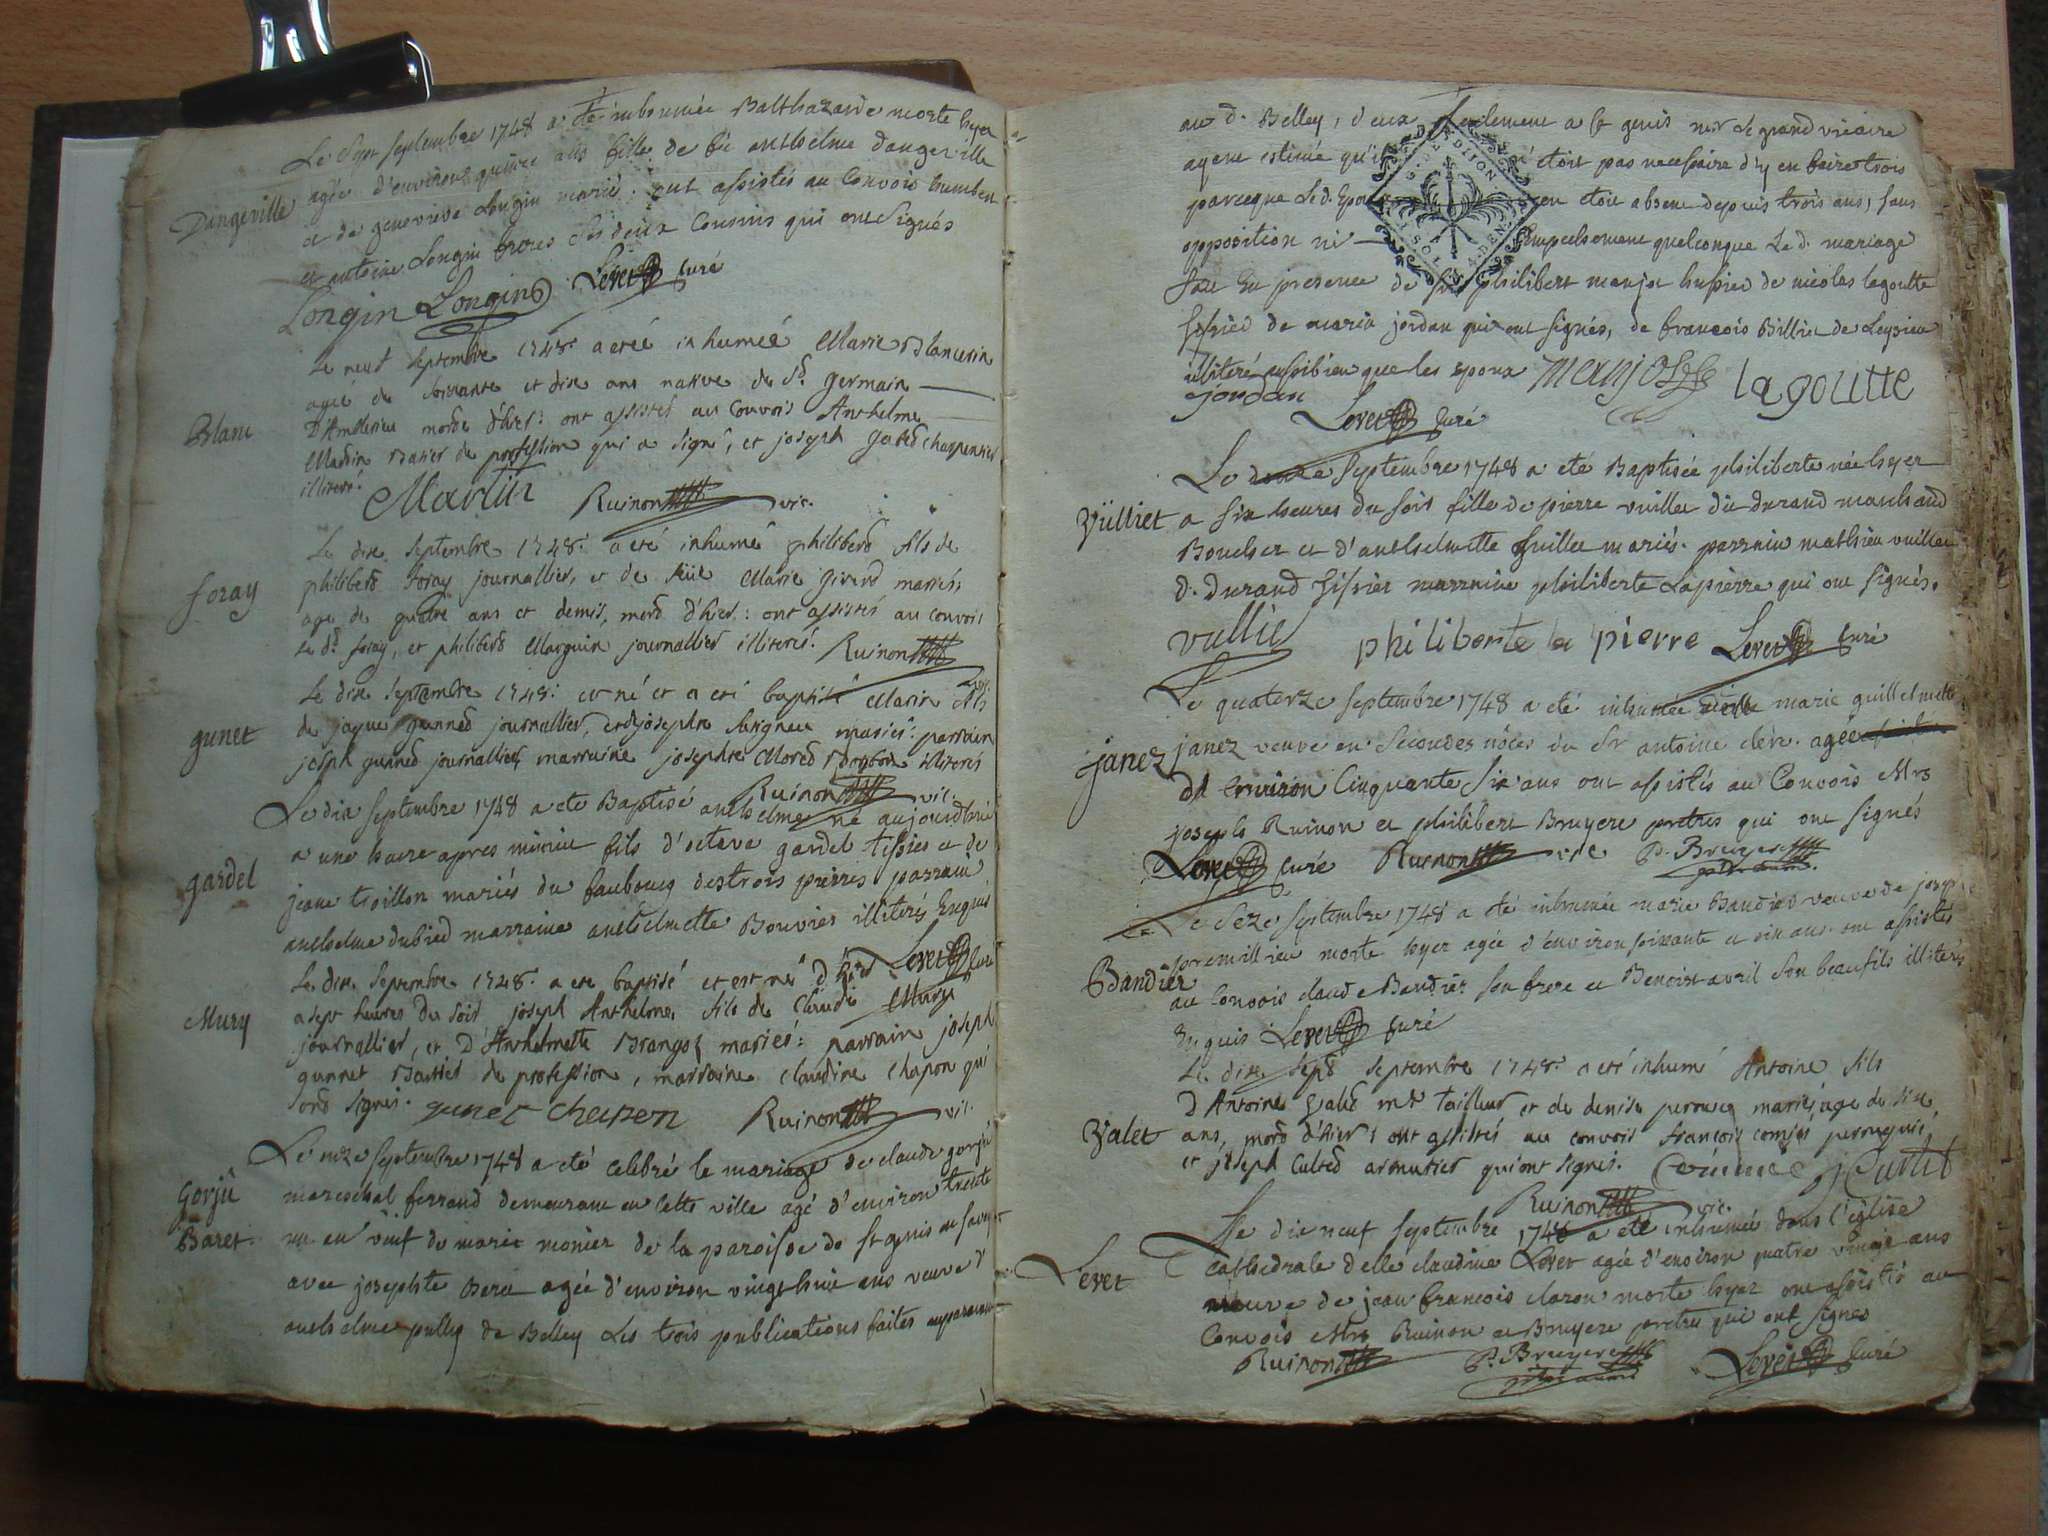 Le Sept Septembre 1748 a été inhumée Balthazarde morte hyer
Dangeville agée d'environ quinze ans fille de feu anthelme dangeville
et de genevieve Longin mariés. ont assistés au Convois humbert
et antoine Longin freres ses deux Cousins qui ont Signés
Longin Longin Levet Curé
Le neuf Septembre 1748. a etée inhumée Marie Blanc
agée de soixante et dix ans native de St. germain
Blanc D'Ambérieu morte d'hier: ont assistés au Convois Anthelme
Martin de profession qui a signé, et joseph charpentier
illiteré.
Martin Ruinon vic.
Le dix Septembre 1748. a eté inhumé philiberd fils de
foray philiberd foray journallier, et de Marie Girard mariés,
age de quatre ans et demis, mord d'hier: ont assistés au convois
Le dt foray, et philiberd Marguin journallier illiterés. Ruinon
vic.
Le dix Septembre 1748. est né et a eté baptisé Marin fils
gunet de jaque gunned journallier, et de josephte mariés. parrain
joseph gunned journallier, marraine josephte Mored illiterés
Ruinon vic.
Le dix Septembre 1748 a été Baptisé anthelme né aujourdhui
a une heure apres minuit fils d'octave gardel tissier et de
gardel jeane troillon mariés du faubourg des trois pierres parrain
anthelme dubied marraine anthelmette Bouvier illiterés Enquis
Levet Curé
Le dix Septembre 1748. a ete baptisé et est né d'hier
Mury a sept heures du soir joseph Anthelme, fils de Claude Mury
journallier, et d'Anthelmette Brangoz mariés: parrain joseph
gunnet de profession, marraine claudine chapon qui
ond signés. gunet chapon Ruinon vic.
Le onze Septembre 1748 a été celebré le mariage de claude gorju
Gorjû mareschal ferrand demeurant en cette ville agé d'environ trente
Baret un en veuf de marie monier de la paroisse de St genis en Savoye
avec josephte Beret agée d'environ vingt huit ans veuve d'
anthelme pully de Belley Les trois publications faites auparavant
au d. Belley, deux Seulement a St genis mr Le grand vicaire
ayant estimé qu'il n'étoit pas necessaire d'y en faire trois
parceque Led. Epoux en étoit absent depuis trois ans, sans
opposition ni Empechement quelconque Le d. mariage
fait En presence de Sr philibert manjot huissier de nicolas lagoutte
de marin jordan qui ont signés, de francois Billiet de Leyrieu
illiteré aussibien que les epoux Manjot lagoutte
jordan
Levet Curé
Le douze Septembre 1748 a été Baptisée philiberte née hyer
Vülliet a Six heures du soir fille de pierre vuillet dit durand marchand
Boucher et d'anthelmette guillet mariés. parrain mathieu vuillet
d. durand marraine philiberte Lapierre qui ont signés.
vullié philiberte la pierre Levet Curé
Le quatorze Septembre 1748 a été inhumée marie guillelmette
janez janez veuve en Secondes nôces du Sr antoine clerc. agée
d'environ Cinquante Six ans ont assistés au Convois Mrs
joseph Ruinon et philibert Bruyere pretres qui ont signés
Levet Curé Ruinon vic P. Bruyere
Le Seze Septembre 1748 a été inhumée marie Bandier veuve de joseph
premillieu morte hyer agée d'environ soixante et dix ans. ont assistés
Bandier au Convois claude Bandier Son frere et Benoist avril Son beaufils illiterés
Enquis Levet Curé
Le dix Sept Septembre 1748. a eté inhumé Antoine fils
d'Antoine Valet mtre tailleur et de denise perraud mariés, age de six
Valet ans, mord d'hier: ont assistés au convois françois perruquier
et joseph Culted armurier qui ont signés. jCurtet
Ruinon vic.
Le dix neuf Septembre 1748 a été inhumée dans l'église
Levet Cathedrale delle claudine Levet agée d'environ quatre vingt ans
veuve de jean francois claron morte hyer ont assistés au
Convois Mrs Ruinon et Bruyere pretres qui ont signés
Ruinon P. Bruyere Levet Curé